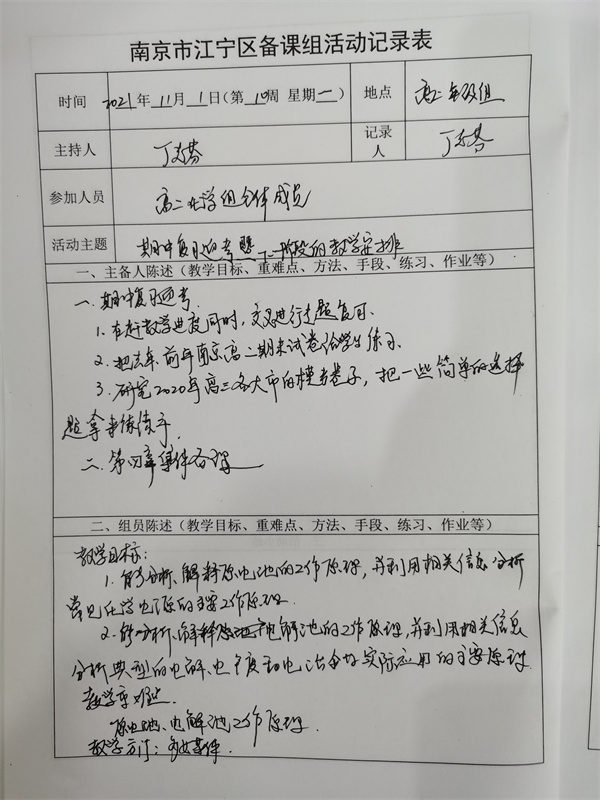 南京市江宁区备课组活动记录表
时间 2021年 11月 1日(第 10周 星期一) 地点 高二年级组
主持人 丁 芬 记录人 丁 芬
参加人员 高二化学组全体成员
活动主题 期中复习迎考暨下一阶段的教学安排
一、主备人陈述(教学目标、重难点、方法、手段、练习、作业等)
一.期中复习迎考.
1.在赶教学进度同时,交叉进行专题复习.
2.把去年、前年南京高二期末试卷给学生练习.
3.研究2020年高三各大市的模考卷子,把一些简单的选择
题拿来练练手.
二.第四章集体备课
二、组员陈述(教学目标、重难点、方法、手段、练习、作业等)
教学目标:
1.能分析、解释原电池的工作原理,并利用相关信息分析
常见化学电源的主要工作原理.
2.能分析、解释电解池的工作原理,并利用相关信息
分析典型的电解、电镀 实际应用的主要原理.
教学重难点
原电池、电解池工作原理
教学方法:多媒体.